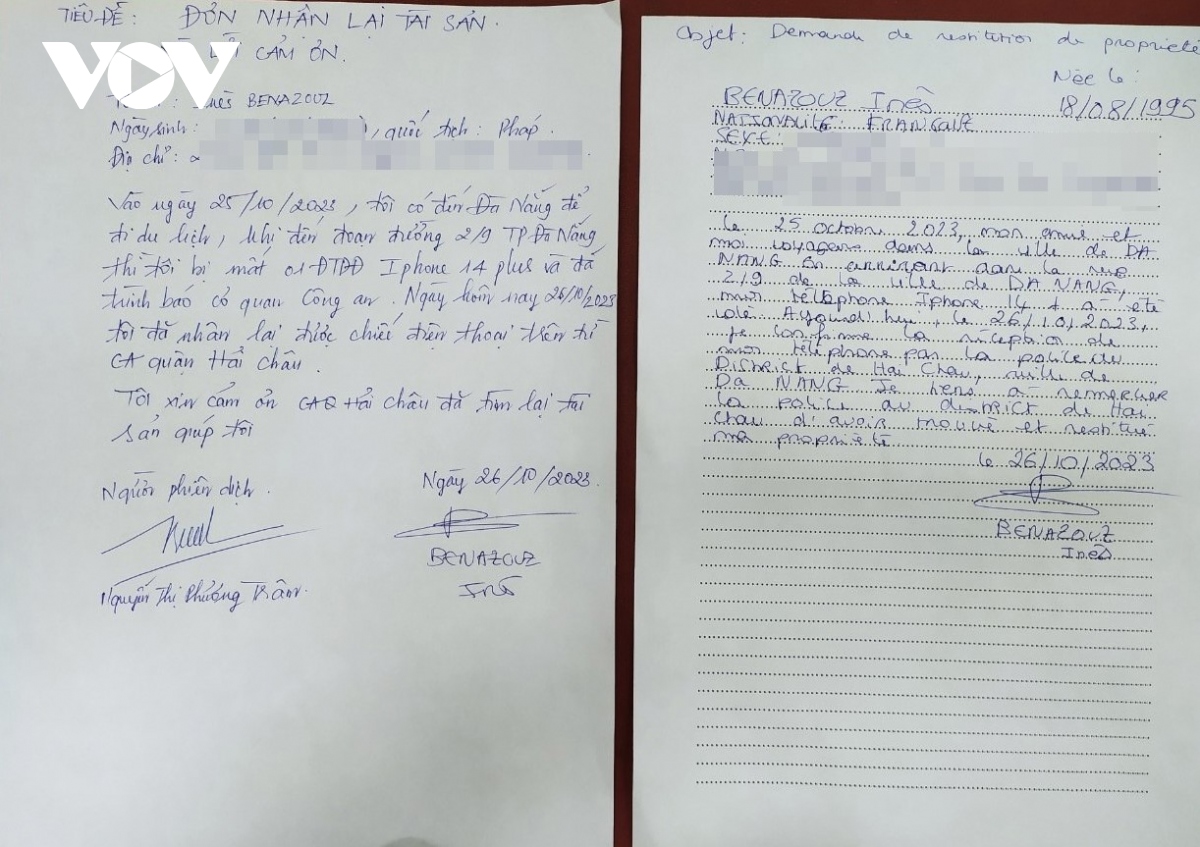 TIÊU ĐỀ: ĐƠN NHẬN LẠI TÀI SẢN.
LỜI CẢM ƠN.
VOV
: Inès BENAZOUZ
Ngày sinh: , quốc tịch: Pháp.
Địa chỉ:
Vào ngày 25/10/2023, tôi có đến Đà Nẵng để
đi du lịch, khi đến đoạn đường 2/9 TP Đà Nẵng
thì tôi bị mất 01 ĐTDĐ Iphone 14 plus và đã
trình báo cơ quan Công an. Ngày hôm nay 26/10/2023
tôi đã nhận lại được chiếc điện thoại trên từ
CA quận Hải Châu.
Tôi xin cảm ơn CAQ Hải Châu đã tìm lại tài
sản giúp tôi
Người phiên dịch. Ngày 26/10/2023.
BENAZOUZ
Inès
Nguyễn Thị Phương Trâm.
Objet: Demande de restitution de propriété
Née le:
BENAZOUZ Inès 18/08/1995
NATIONALITÉ: FRANÇAISE
SEXE:
le 25 octobre 2023, mon amie et
moi voyageons dans la ville de DA
NANG En arrivant dans la rue
2/9 de la ville de DA NANG,
mon téléphone Iphone 14 + a été
volé Aujourd'hui, le 26/10/2023,
je confirme la réception de
mon téléphone par la police du
District de Hai Chau, ville de
Da NANG Je tiens à remercier
la police du district de Hai
Chau d'avoir trouvé et restitué
ma propriété
le 26/10/2023
BENAZOUZ
Inès